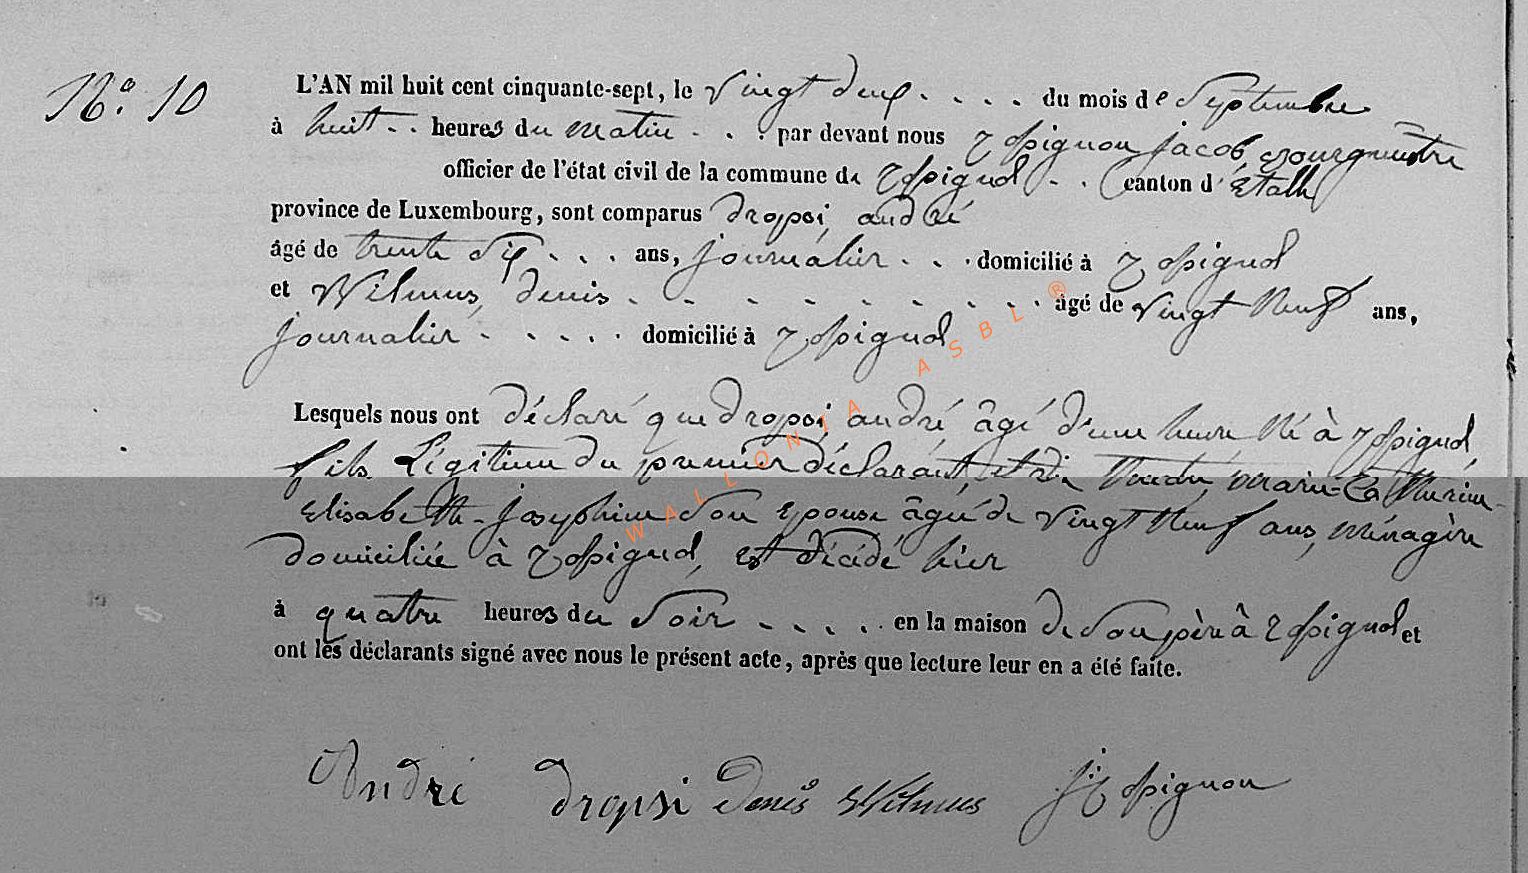 N.° 10
L'AN mil huit cent cinquante-sept, le vingt deux . . . . du mois de septembre
à huit . . heures du matin . . . par devant nous Jacob, Bourgmestre
officier de l'état civil de la commune de . . canton d'Etalle
province de Luxembourg, sont comparus dropsi, andré
âgé de trente six . . . ans, journalier . . . domicilié à
et Wilmus, denis . . . . . . . . . âgé de vingt neuf ans,
journalier . . . . . domicilié à
Lesquels nous ont déclaré que dropsi, andré âgé d'une heure né à
fils Légitime du premier déclarant, et de marie-Catherine-
Elisabeth-Josephine son epouse âgée de vingt neuf ans, ménagère
domiciliée à est décédé hier
à quatre heures du soir . . . . . en la maison de son père à et
ont les déclarants signé avec nous le présent acte, après que lecture leur en a été faite.
André dropsi Denis Wilmus
WALLONIA ASBL ®